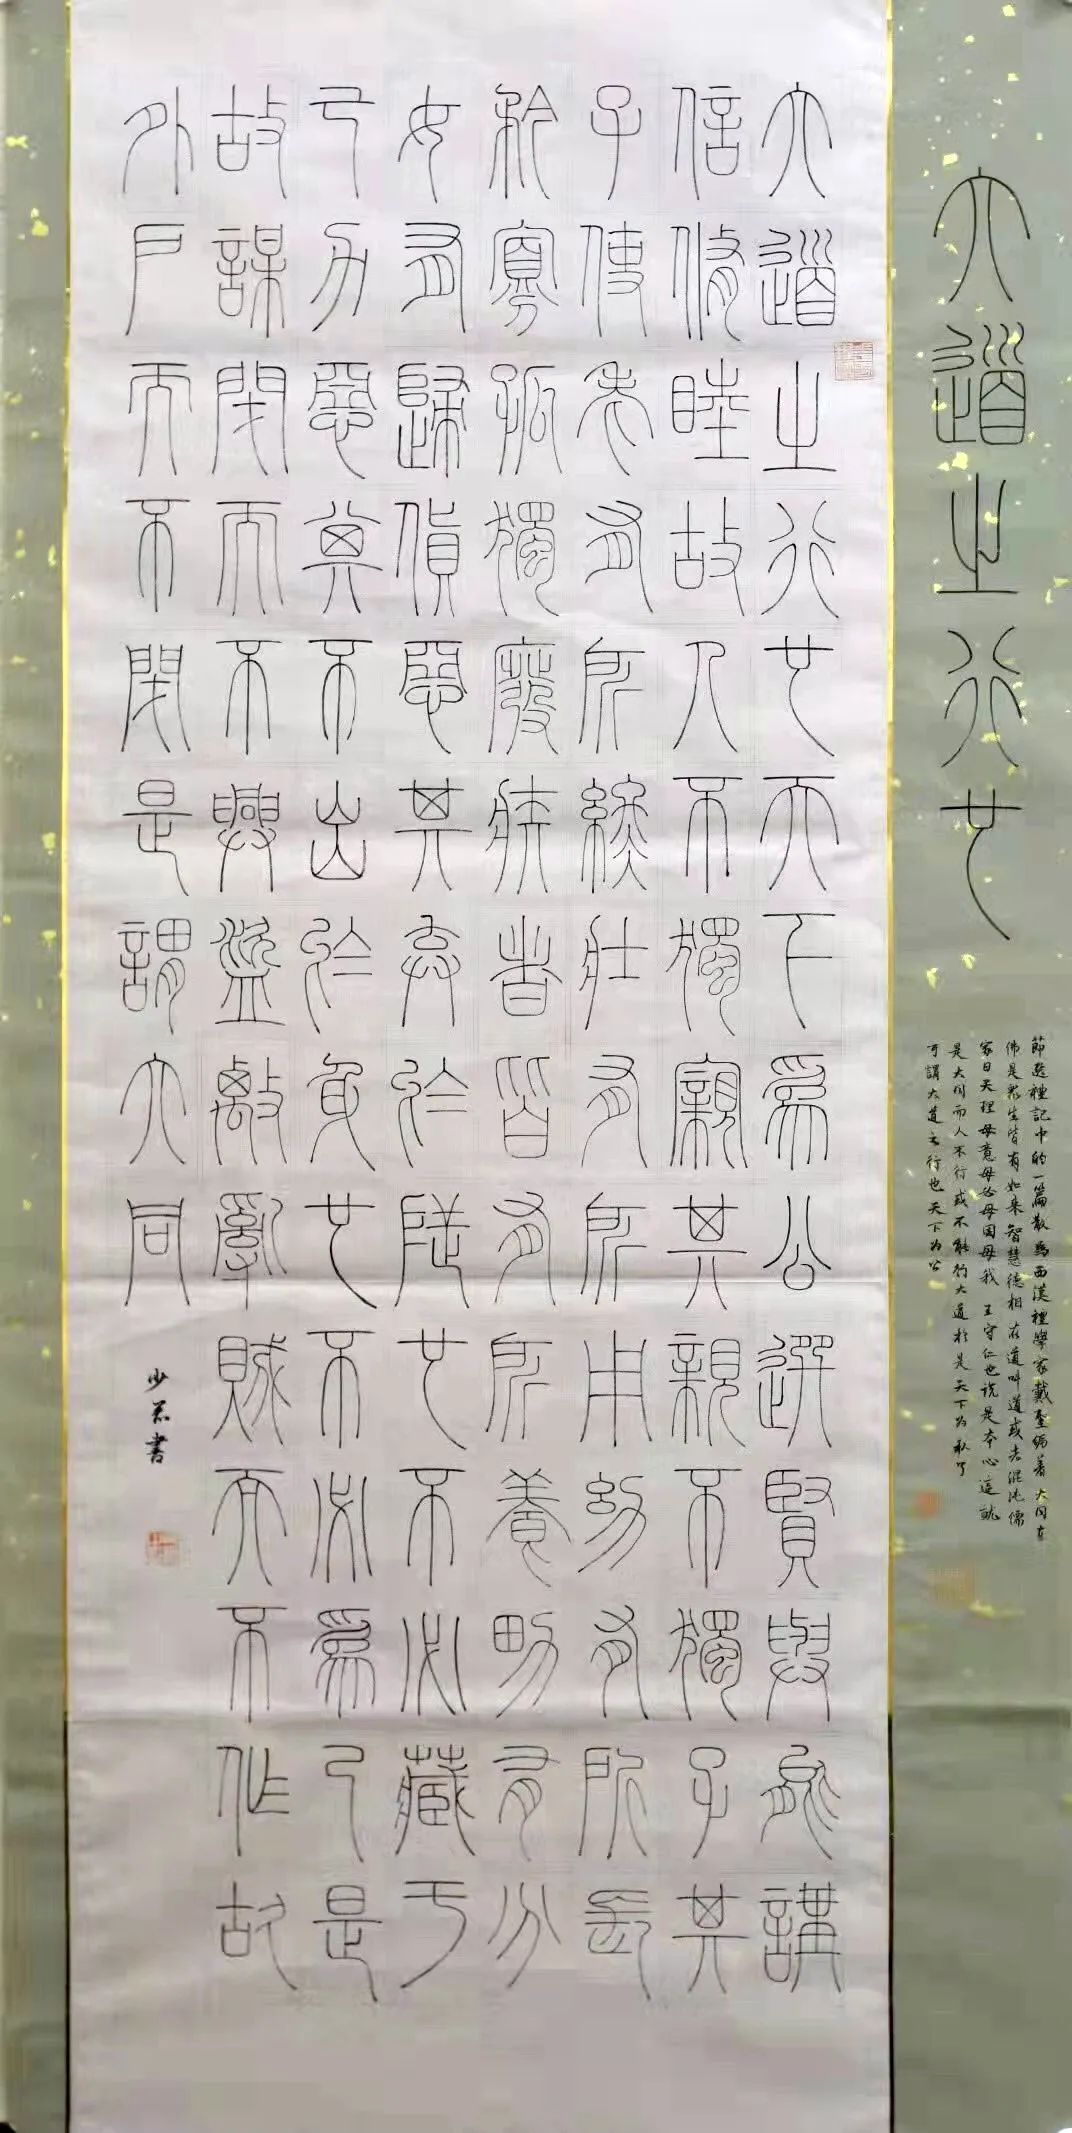 大道之行也
節選禮記中的一篇散為西漢禮學家戴聖編著 大同在
佛是眾生皆有如来智慧德相 在道叫道或者混沌儒
家曰天理毋意毋必毋固毋我 王守仁也说是本心這就
是大同而人不行或不能行大道於是天下为私了
可謂大道之行也天下为公
大道之行也天下為公選賢與能講
信修睦故人不獨親其親不獨子其
子使老有所終壯有所用幼有所長
矜寡孤獨廢疾者皆有所養男有分
女有歸貨惡其棄於地也不必藏于
己力惡其不出於身也不必為己是
故謀閉而不興盜竊亂賊而不作故
外戶而不閉是謂大同
少 書